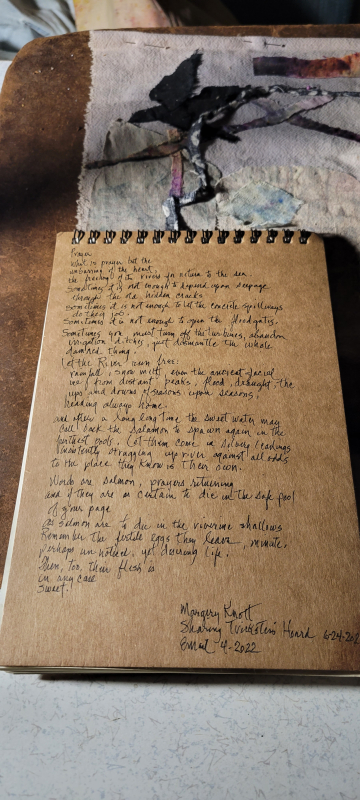 Prayer
What is prayer but the
unbarring of the heart,
the freeing of the rivers for return to the sea.
Sometimes it is not enough to depend upon seepage
through the old hidden cracks
Sometimes it is not enough to let the concrete spillways
do they job
Sometimes it is not enough to open the floodgates.
Sometimes you must turn off the turbines, abandon
irrigation ditches, just dismantle the whole
damned thing.
Let the River run free:
rainfall, snow melt, even the ancient glacial
ice from distant peaks, flood, drought, the
ups and downs of seasons upon seasons,
heading always home.
and after a long long time the sweet water may
call back the salamon to spawn again in the
farthest ends. Let them come in silvery leapings
insistently struggling up river against all odds
to the place they know is their own.
Words are salmon, prayers returning
and if they are as certain to die in the safe pool
of your page
as salmon are to die in the riverine shallows
Remember the fertile eggs they leave, minute,
perhaps unnoticed, yet during life.
Then, too, their flesh is
in any case
Sweet.
Margery Knott
Sharing Heard 6-24-202
Email 4-2022